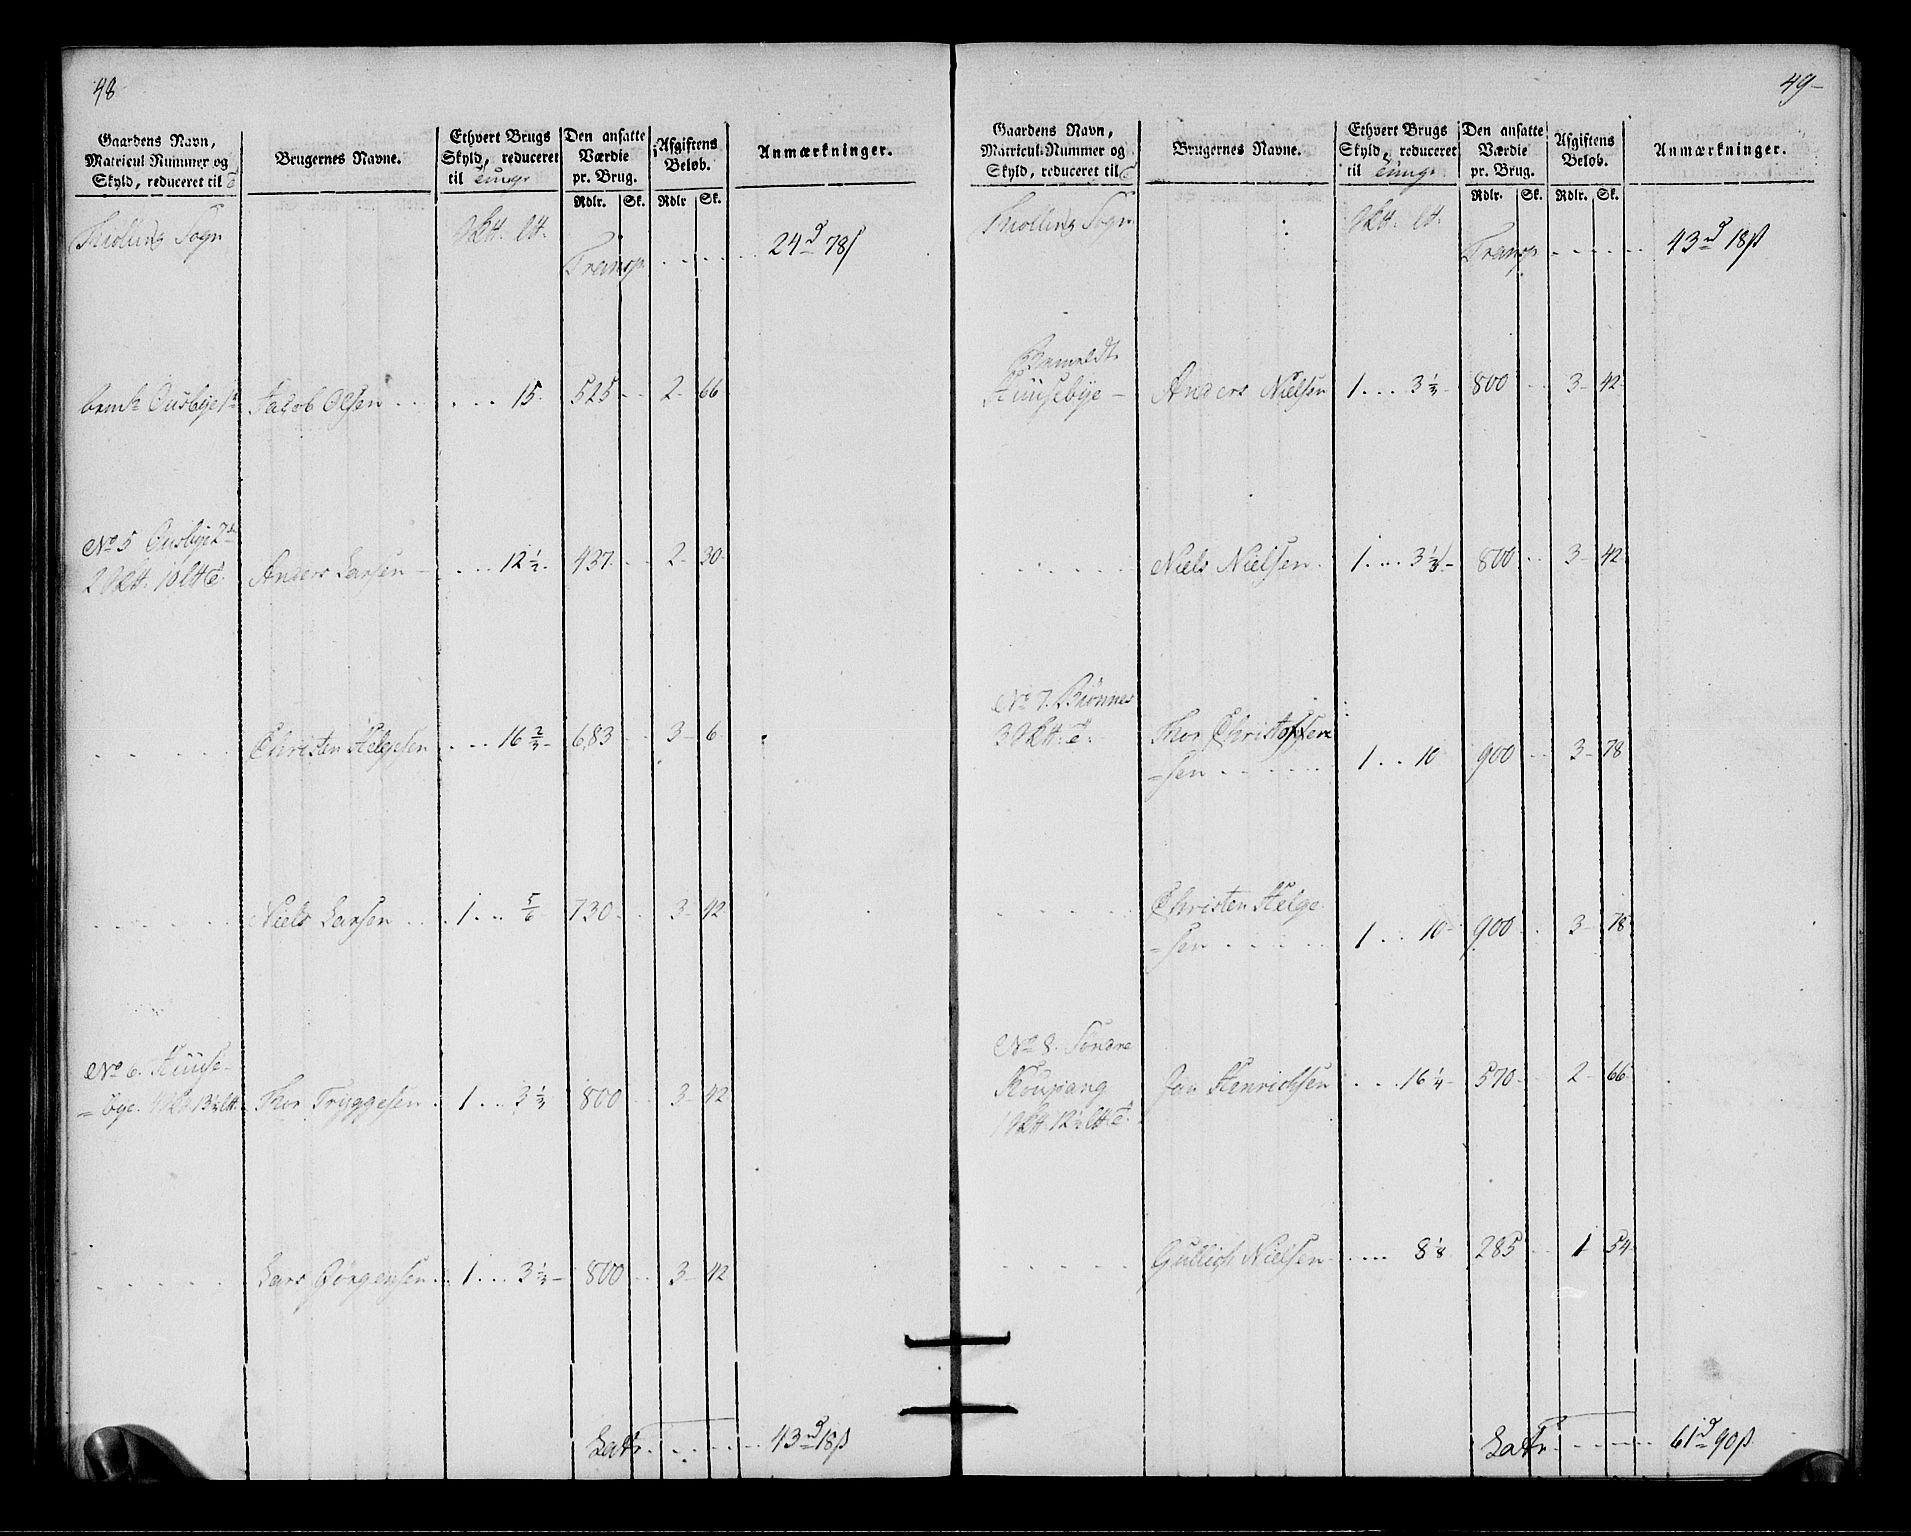 48
Gaardens Navn,
Matricul-Nummer og
Skyld, reduceret til
Brugernes Navne.
Ethvert Brugs
Skyld, reduceret
til Tunge
Den ansatte
Værdie
pr. Brug.
Afgiftens
Beløb.
Anmærkninger.
Rdlr. Sk. Rdlr Sk.
Thiølling Sogn
Transp 24 78ß
Ousbye Jacob Olsen 15 525 2 66
No 5 Ousbye
Anders Larsen 12 1/2 437 2 30
Christen Helgesen 16 2/3 683 3 6
Niels Larsen 1 5/6 730 3 42
No 6. Huuse-
=bye Thor Tryggesen 1 3 1/3 800 3 42
Lars Jørgensen 1 3 1/3 800 3 42
Latr 43 18ß
49
Gaardens Navn,
Matricul-Nummer og
Skyld, reduceret til
Brugernes Navne.
Ethvert Brugs
Skyld, reduceret
til Tunge
Den ansatte
Værdie
pr. Brug.
Afgiftens
Beløb.
Anmærkninger.
Rdlr. Sk. Rdlr. Sk.
Thiølling Sogn
Transp 43 18ß
Huusebye Anders Nielsen 1 3 1/3 800 3 42
Niels Nielsen 1 3 1/3 800 3 42
No 7. Biønnes
Thor Christoffer
=sen 1 10 900 3 78
Christen Helge
=sen 1 10 900 3 78
No 8. Søndre
Koupang Jan Henrichsen 16 1/4 570 2 66
Gullich Nielsen 8 1/8 285 1 54
Latr 61 90ß